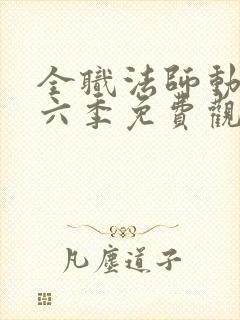 全職法師動
六季免費觀
凡塵道子